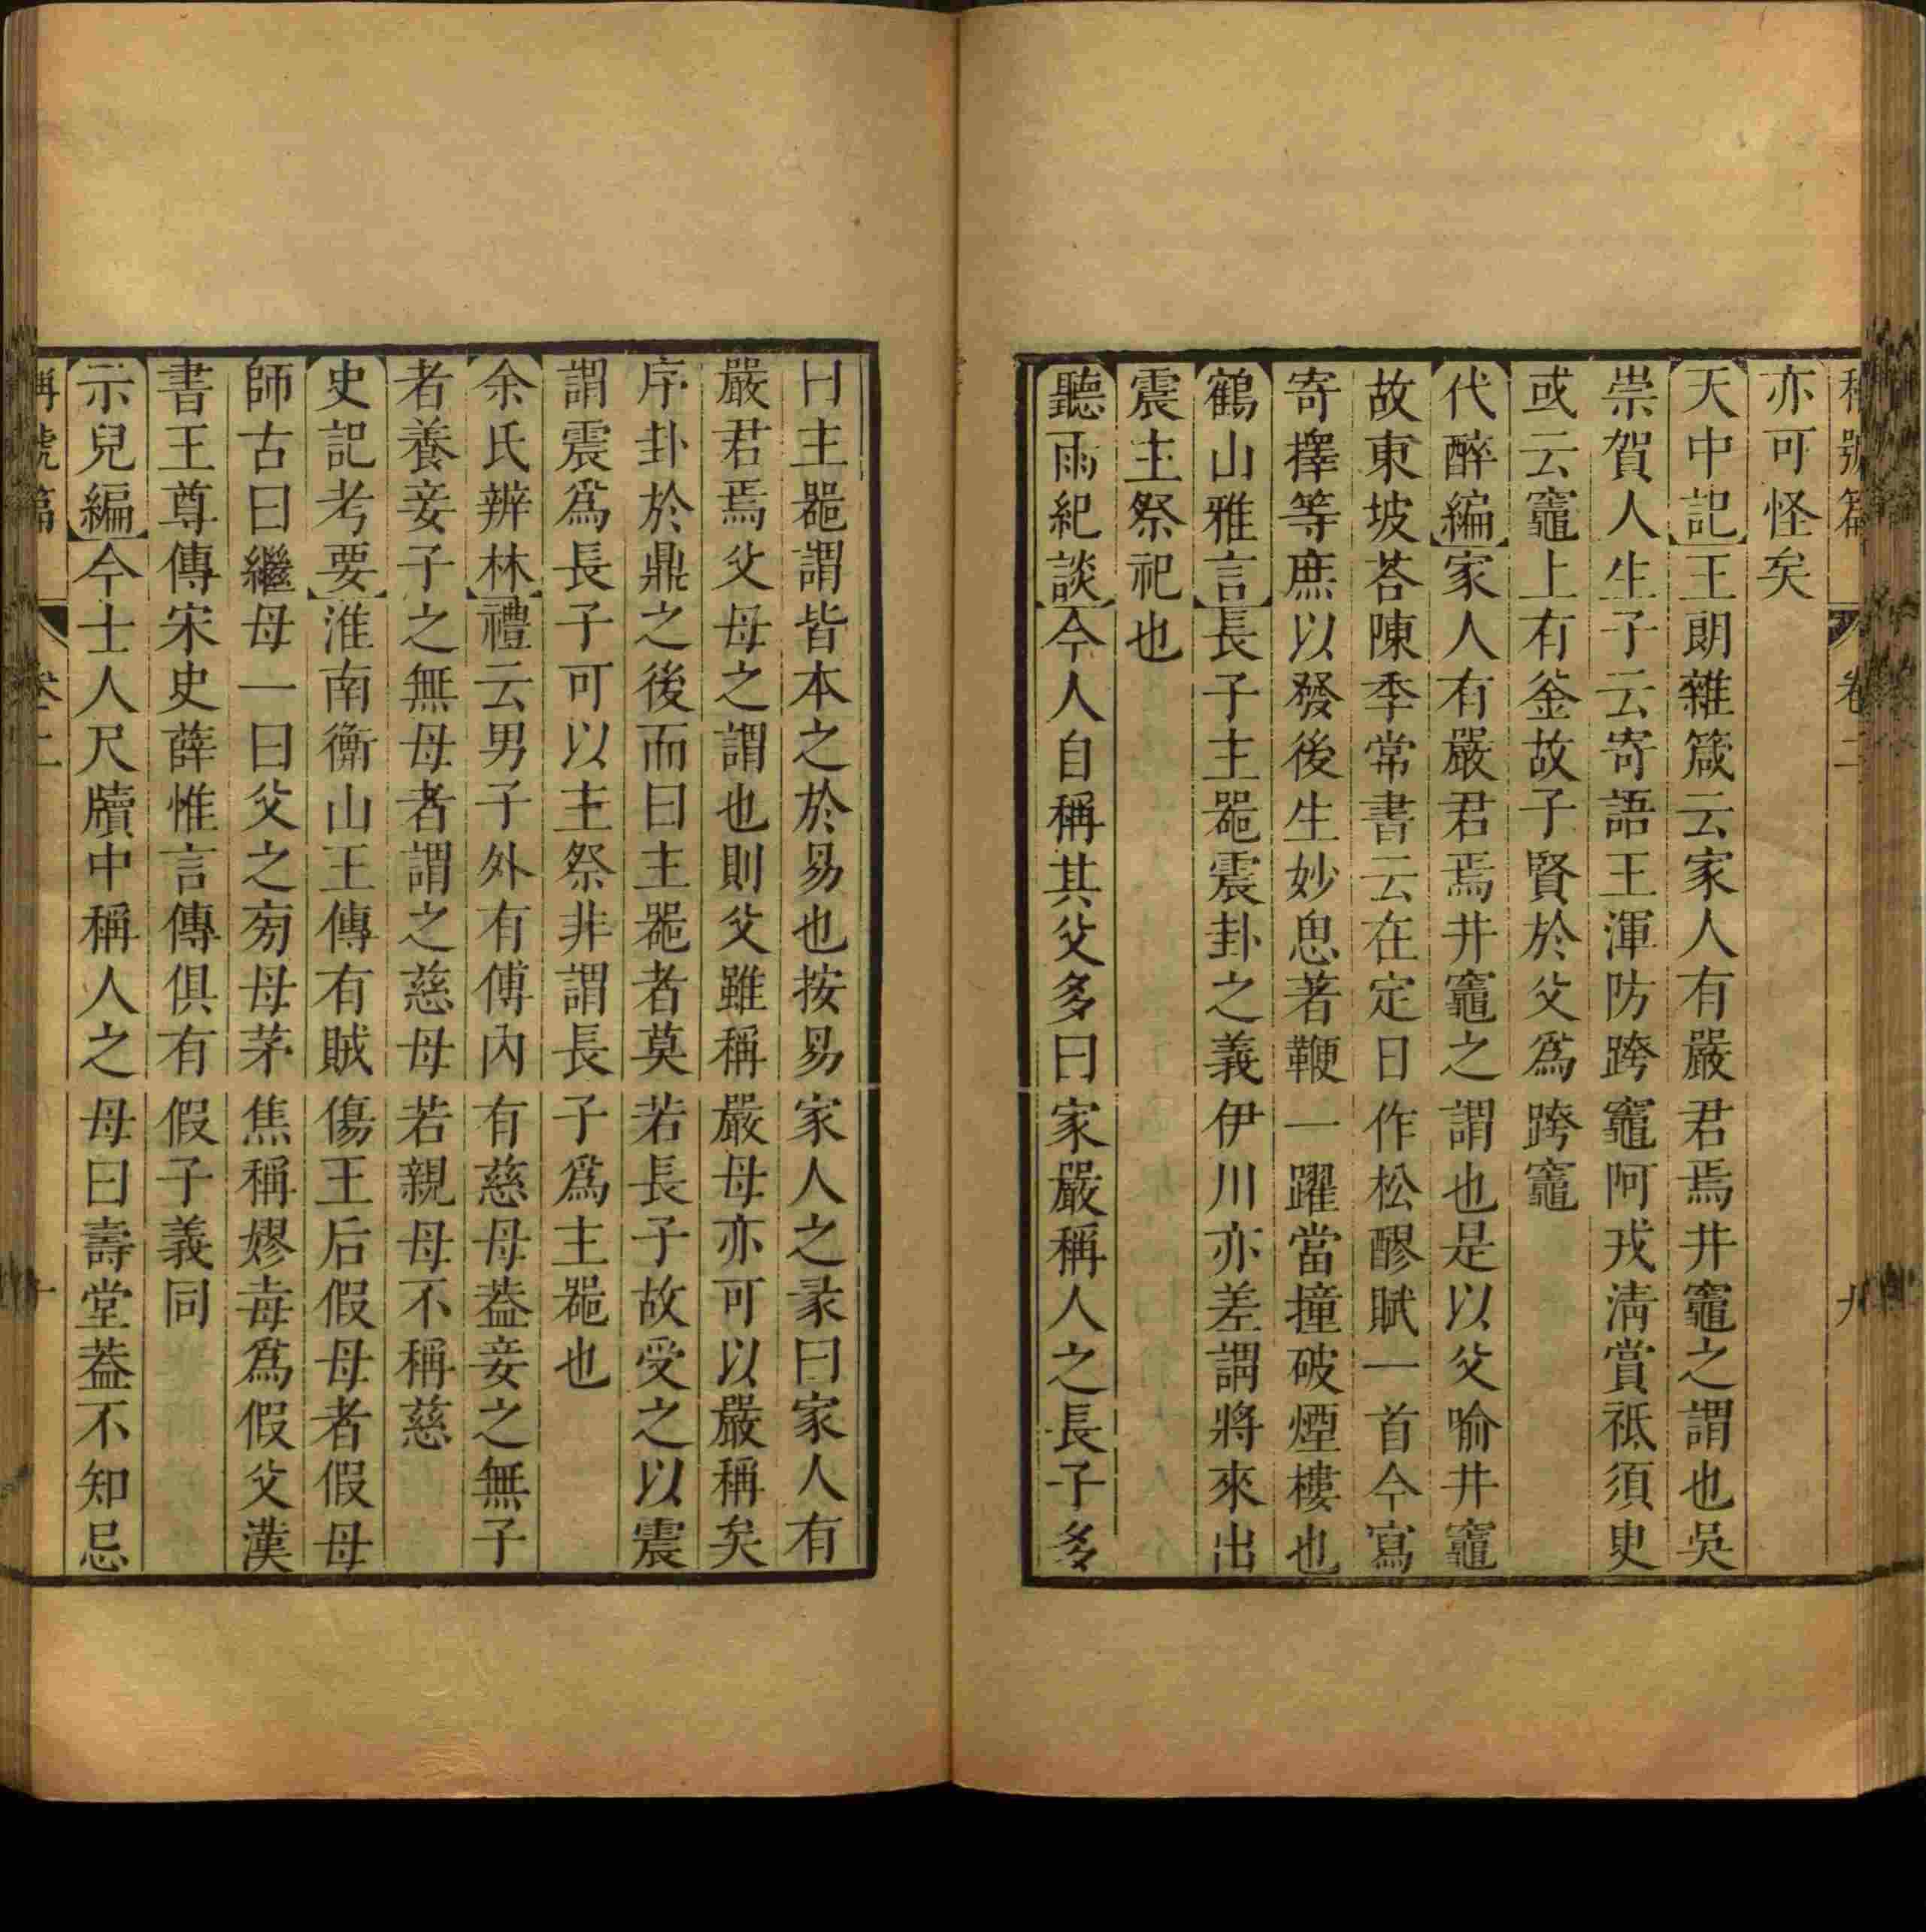 稱號篇 卷二 九
亦可怪矣
天中記王朗雜箴云家人有嚴君焉井竈之謂也吳
崇賀人生子云寄語王渾防跨竈阿戎淸賞祗須史
或云竈上有釜故子賢於父爲跨竈
代醉編家人有嚴君焉井竈之謂也是以父喻井竈
故東坡荅陳季常書云在定日作松醪賦一首今寫
寄擇等庶以發後生妙思著鞭一躍當撞破煙樓也
鶴山雅言長子主噐震卦之義伊川亦差謂將來出
震主祭祀也
聽雨紀談今人自稱其父多曰家嚴稱人之長子多
曰主噐謂皆本之於易也按易家人之彖曰家人有
嚴君焉父母之謂也則父雖稱嚴母亦可以嚴稱矣
序卦於鼎之後而曰主噐者莫若長子故受之以震
謂震爲長子可以主祭非謂長子爲主噐也
余氏辨林禮云男子外有傅內有慈母葢妾之無子
者養妾子之無母者謂之慈母若親母不稱慈
史記考要淮南衡山王傳有賊傷王后假母者假母
師古曰繼母一曰父之旁母茅焦稱嫪毐爲假父漢
書王尊傳宋史薛惟言傳俱有假子義同
示兒編今士人尺牘中稱人之母曰壽堂葢不知忌
稱號篇 卷二 十